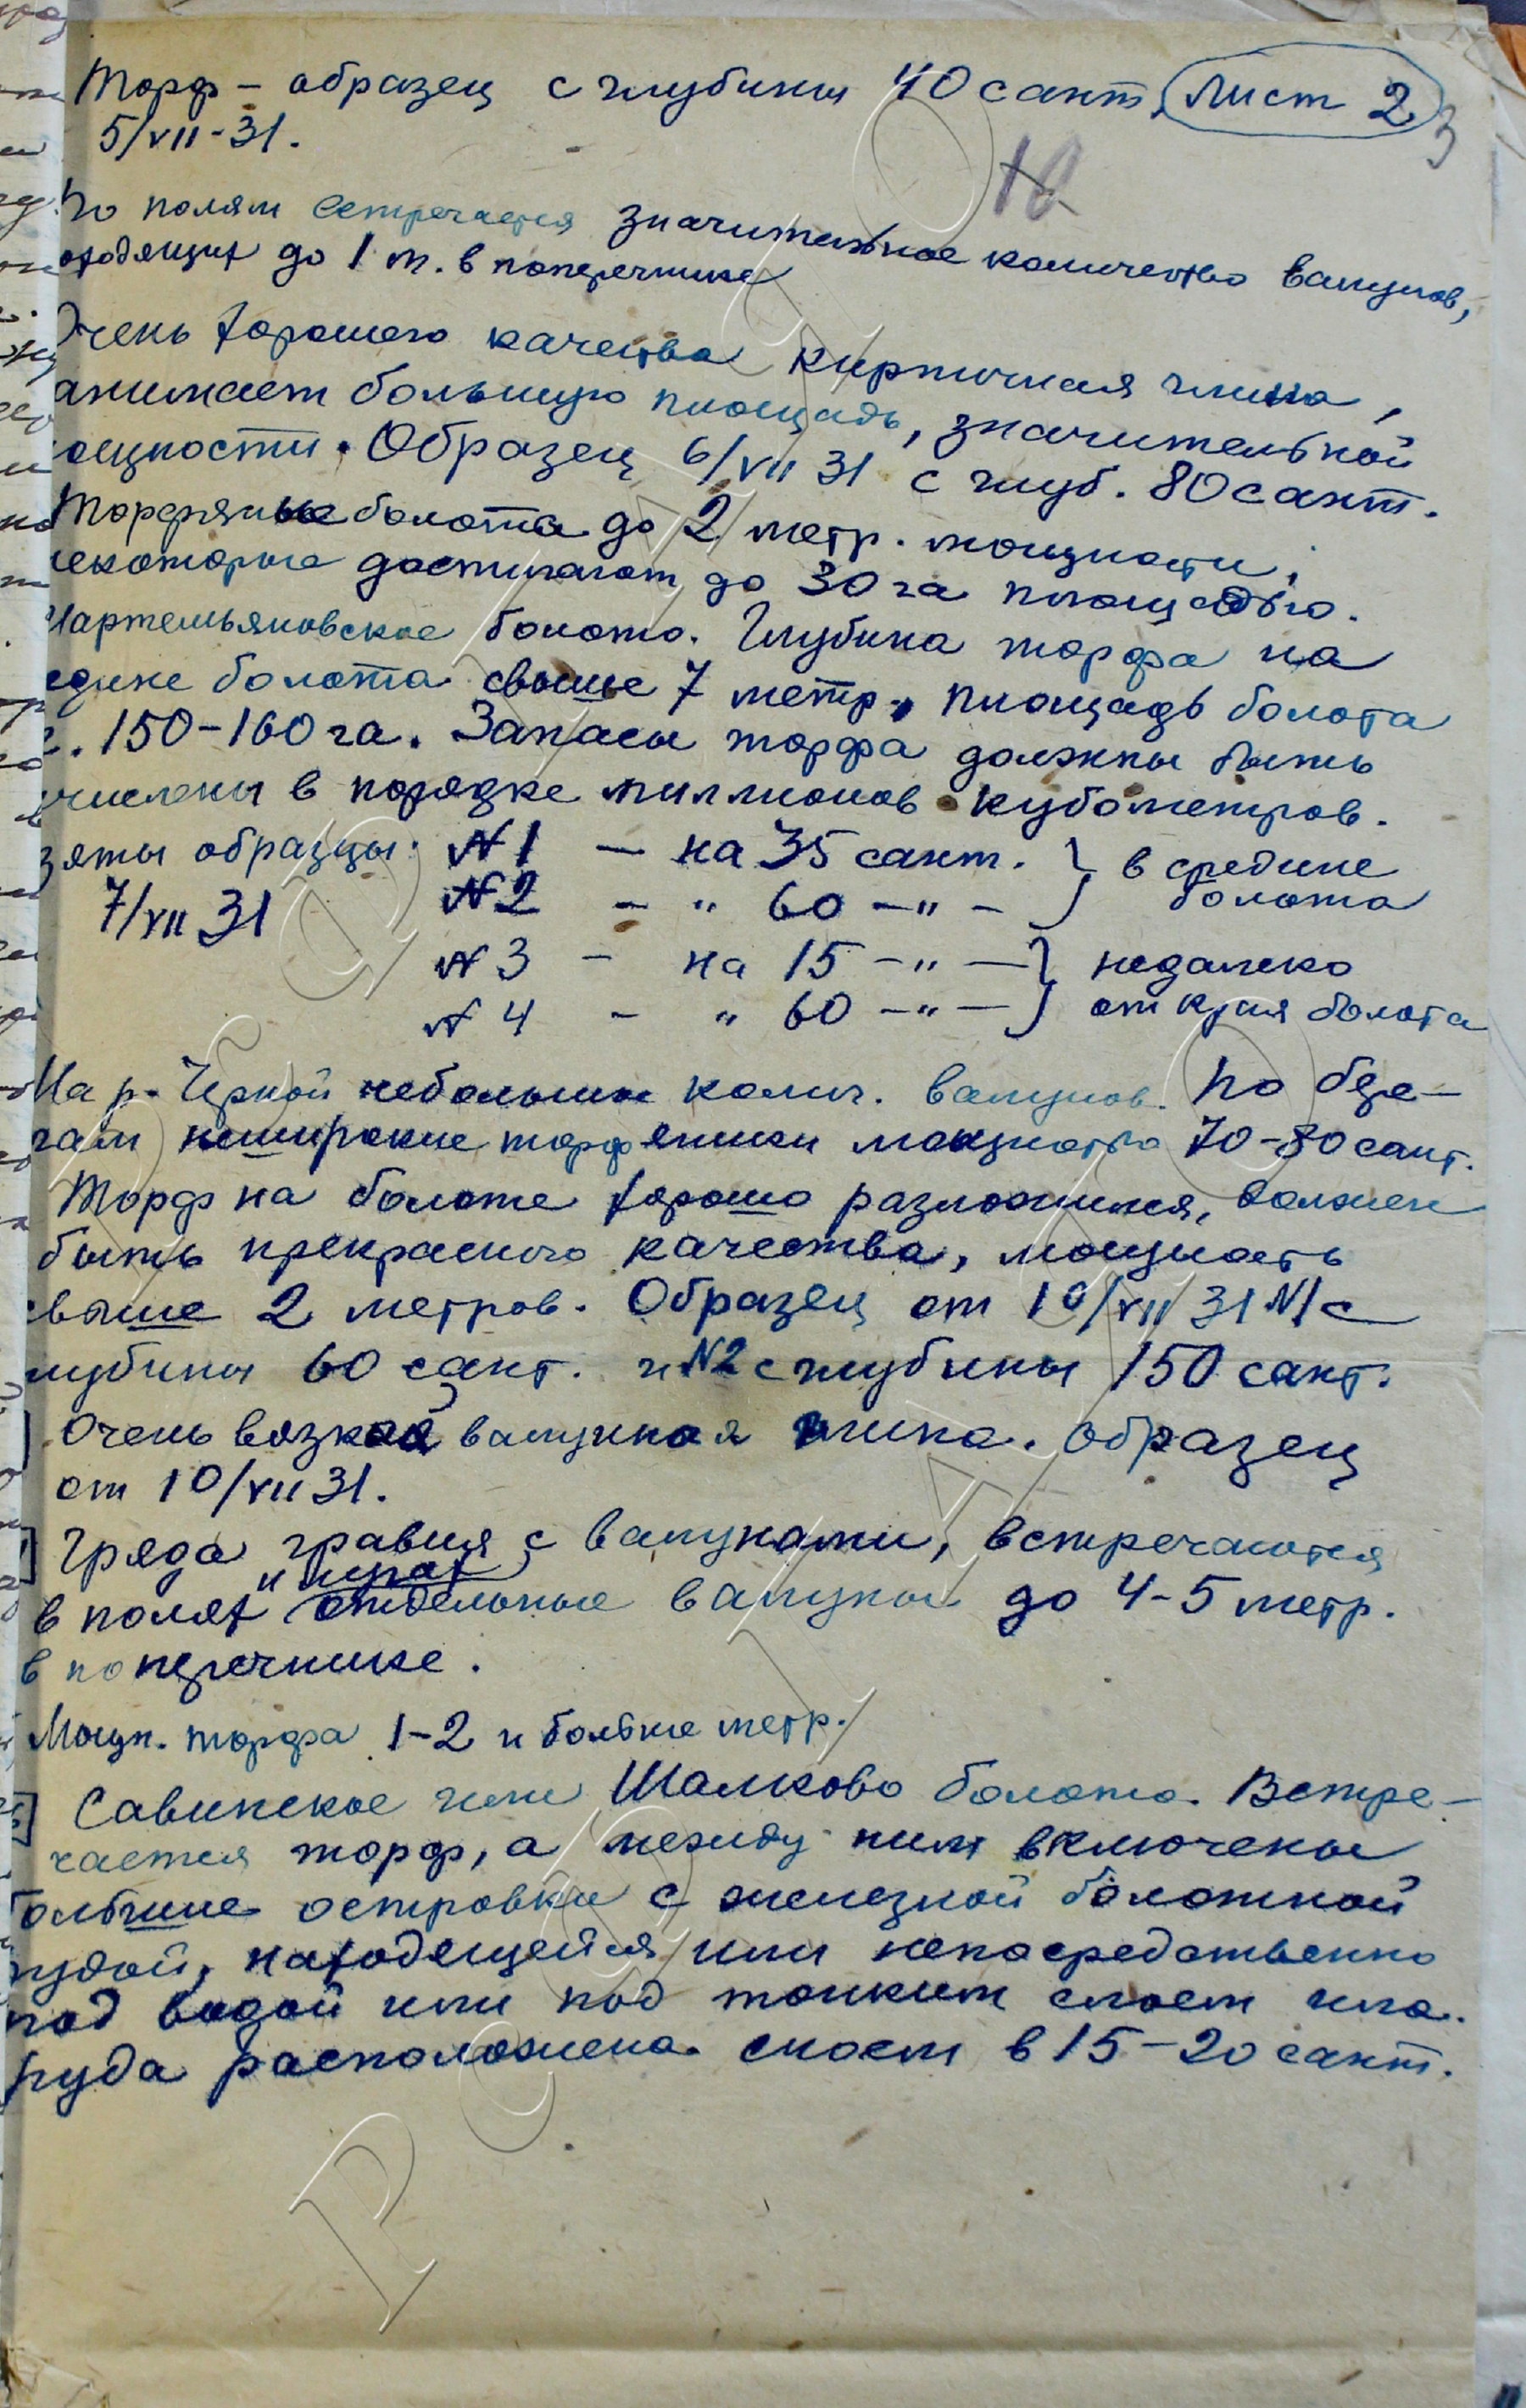 Торф – образец с глубины 40 сант. Лист 2
3
5/VII-31.
10
По полям встречается значительное количество валунов,
доходящих до 1 м. в поперечнике
Очень хорошего качества кирпичная глина,
занимает большую площадь, значительной
мощности. Образец 6/VII 31 с глуб. 80 сант.
Торфяные болота до 2 метр. мощности,
некоторые достигают до 30 га площадью.
Мартемьяновское болото. Глубина торфа на
средине болота свыше 7 метр., площадь болота
150-160 га. Запасы торфа должны быть
исчислены в порядке миллионов кубометров.
Взяты образцы: N1 – на 35 сант. } в средине
N2 – " 60 –"– } болота
7/VII 31
N3 – на 15 –"– } недалеко
N4 – " 60 –"– } от края болота
На р. Черной небольшое колич. валунов. По бере-
гам неширокие торфяники мощность 70-80 сант.
Торф на болоте хорошо разложился, должен
быть прекрасного качества, мощность
свыше 2 метров. Образец от 10/VII 31 N1 с
глубины 60 сант. и N2 с глубины 150 сант.
Очень вязкая валунная глина. Образец
от 10/VII 31.
Гряда гравия с валунами, встречаются
в полях отдельные валуны до 4-5 метр.
в поперечнике.
Мощн. торфа 1-2 и больше метр.
Савинское или Шалково болото. Встре-
чается торф, а между ним включены
большие островки с железной болотной
рудой, находящейся или непосредственно
под водой или под тонким слоем ила.
Руда расположена слоем в 15-20 сант.